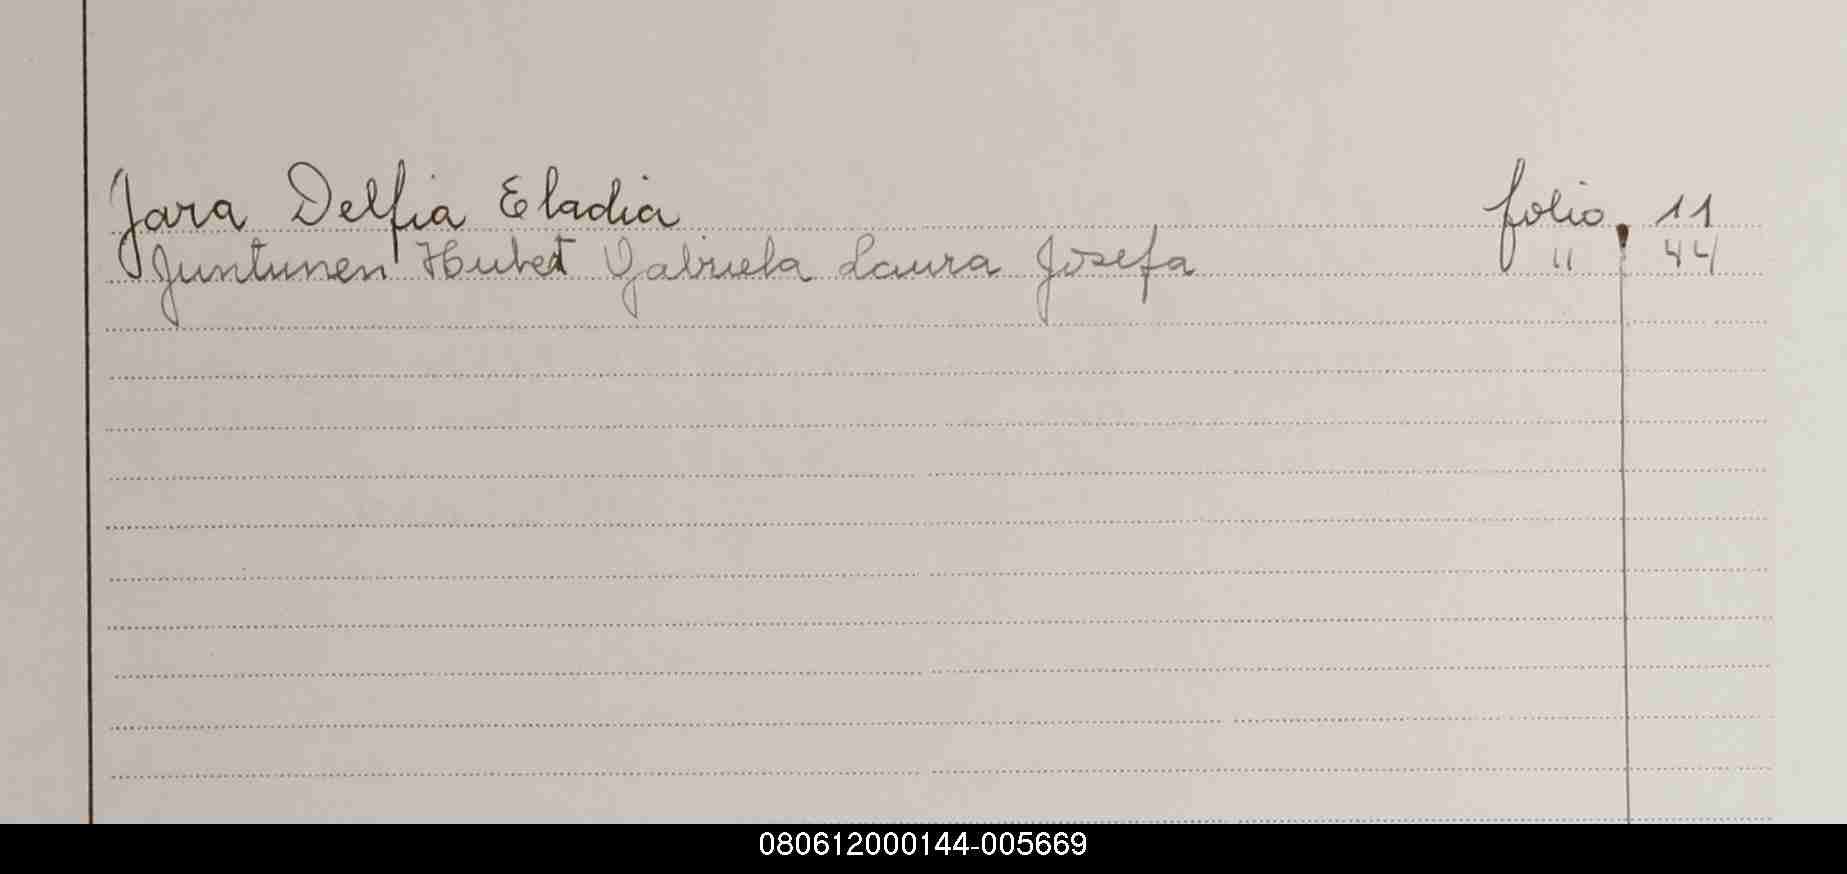 Jara Delfia Eladia folio 11
Juntunen Hubert Gabriela Laura Josefa " 44
080612000144-005669